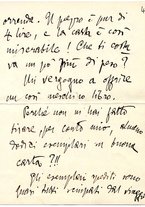 4
orrenda. Il prezzo è pur di
4 lire, e la carta è così
miserabile! Che ti costa
va un po' più di peso?
Mi vergogno a offrire
un così meschino libro.
Perché non mi hai fatto
tirare, per conto mio, almeno
dodici esemplari in buona
carta?!!
Gli esemplari spediti sono
quasi tutti sciupati dal viaggio